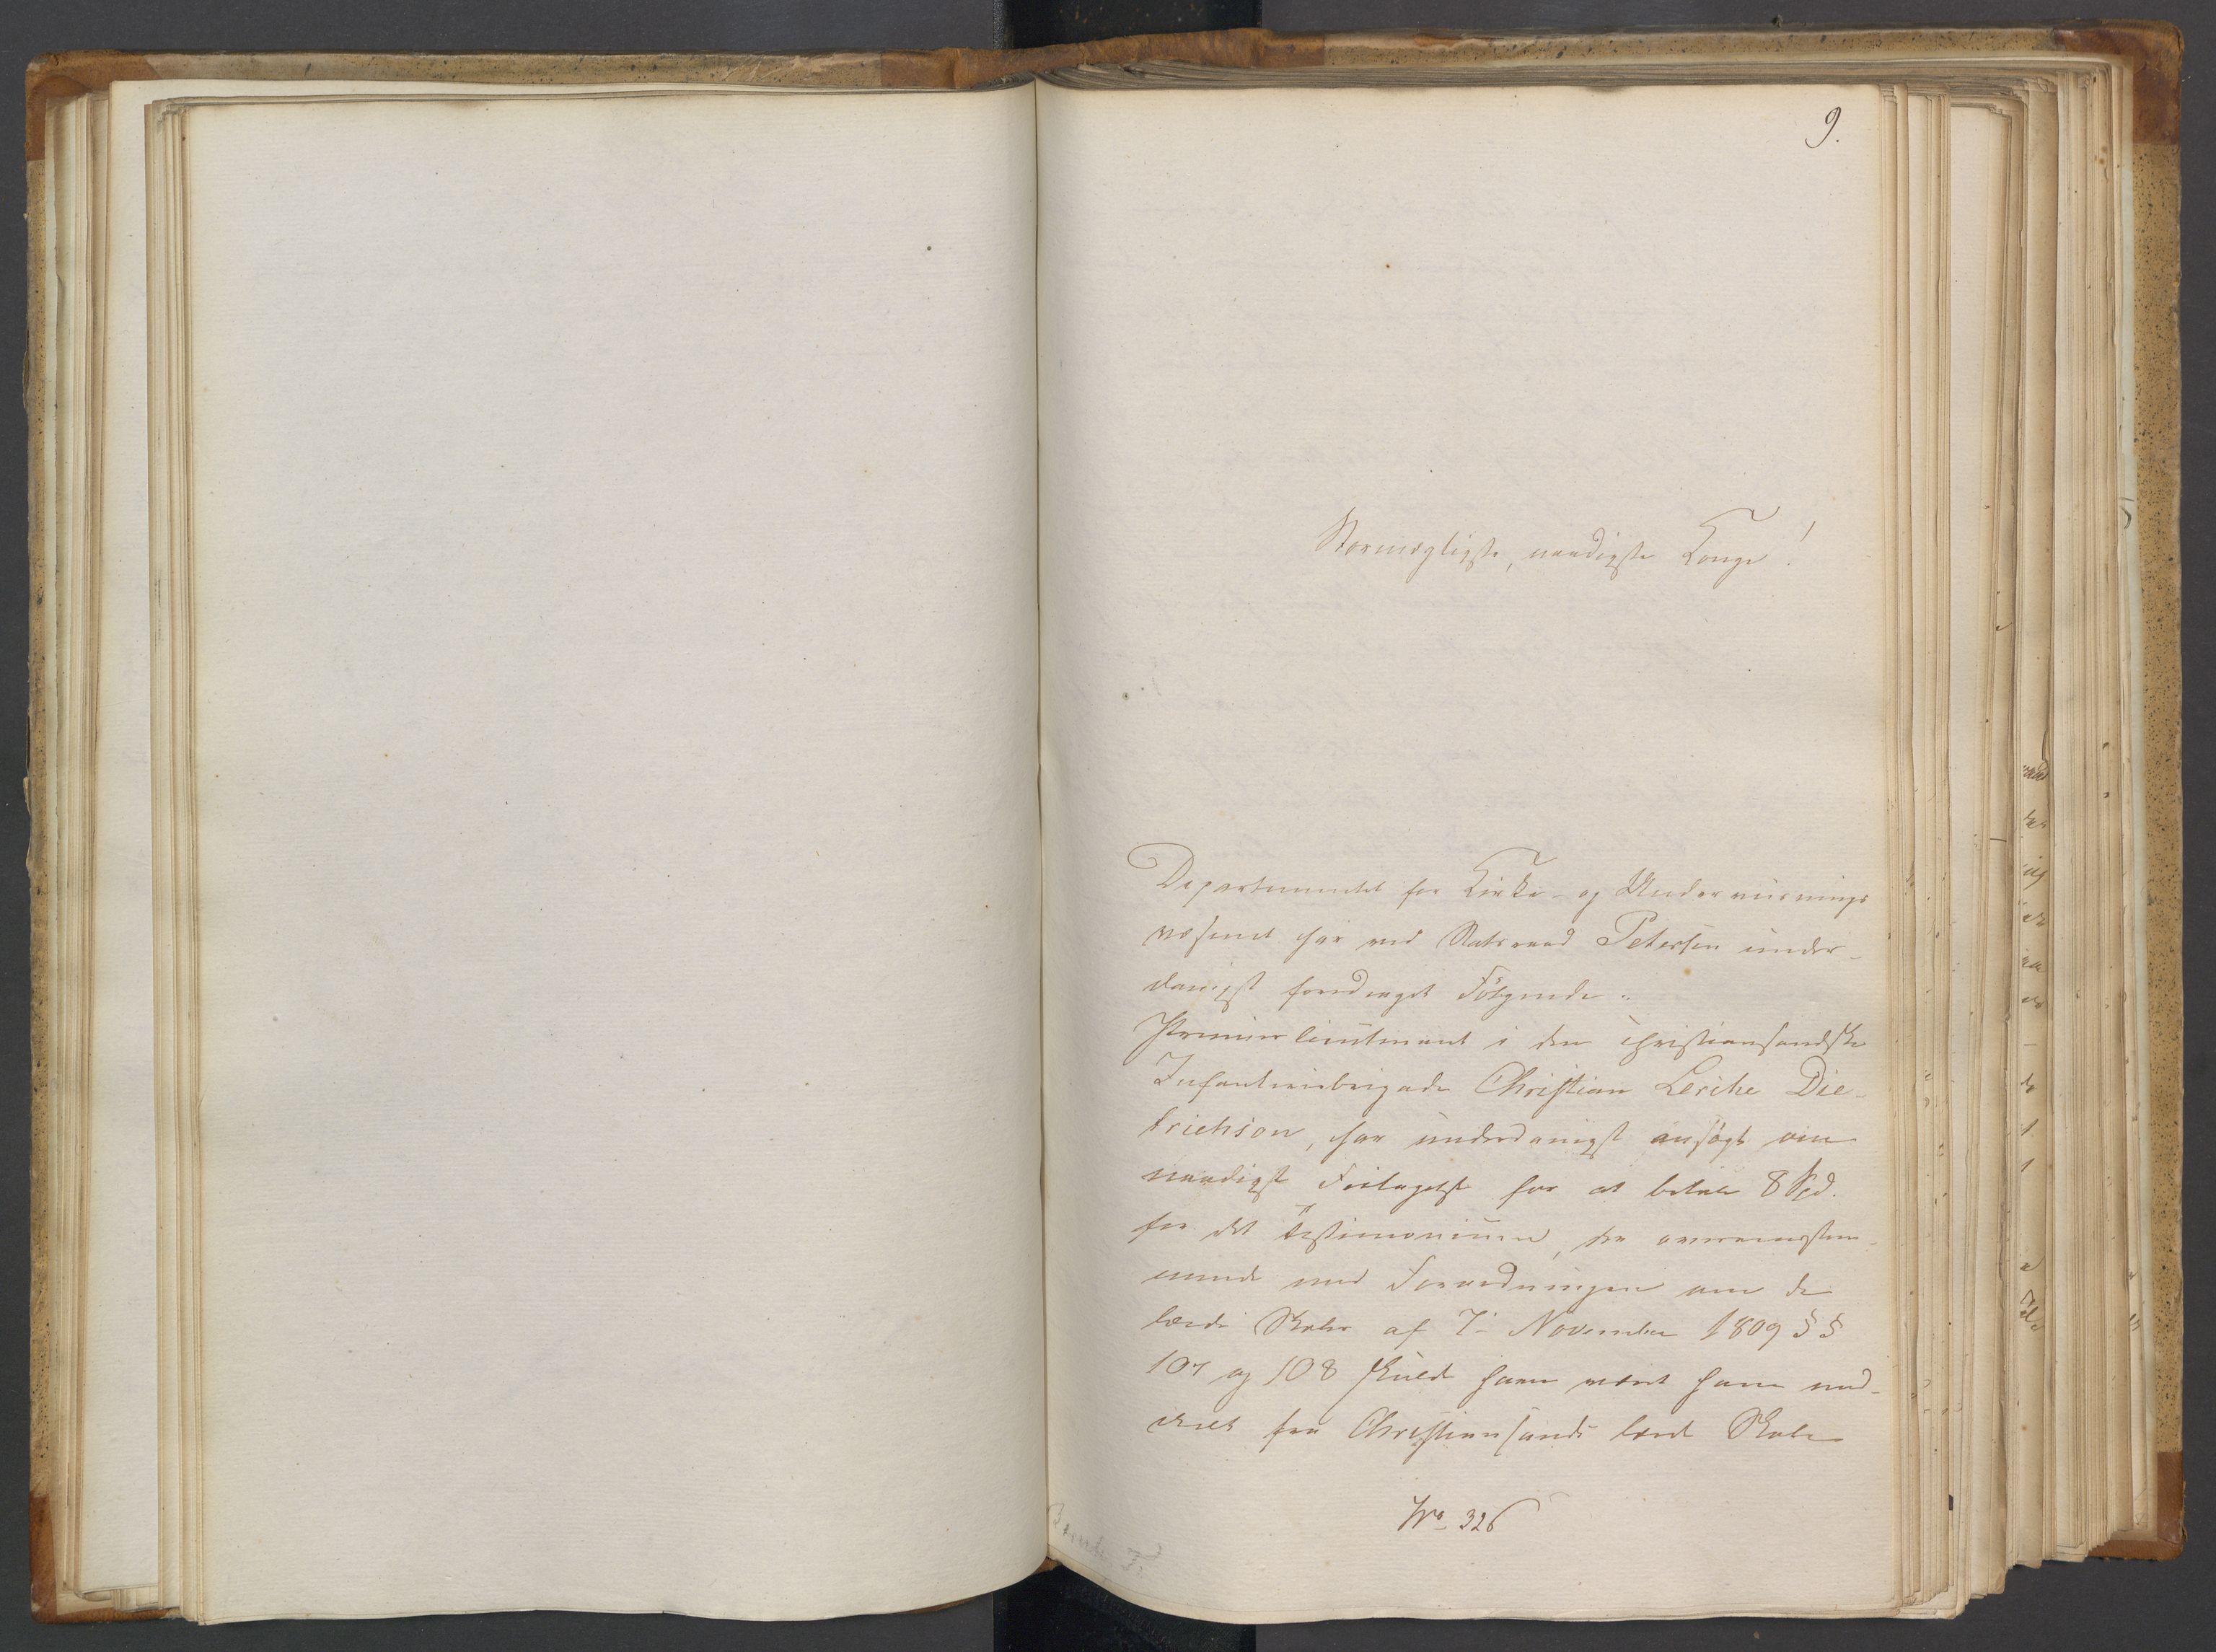 9.
Stormægtigste, naadigste Konge!
Departementet for Kirke- og Underviisnings
væsenet har ved Statsraad Petersen under-
danigst foredraget Følgende:
Premierlieutenant i den christiansandske
Infanteriebrigade Christian Lerche Die-
trichson, har underdanigst ansøgt om
naadigst Fritagelse for at betale 8 Spd.
for det Testimonium, der overeensstem-
mende med Forordningen om de
lærde Skoler af 7de November 1809 §§
107 og 108 skulde have været ham med-
deelt fra Christiansands lærde Skole
No 326